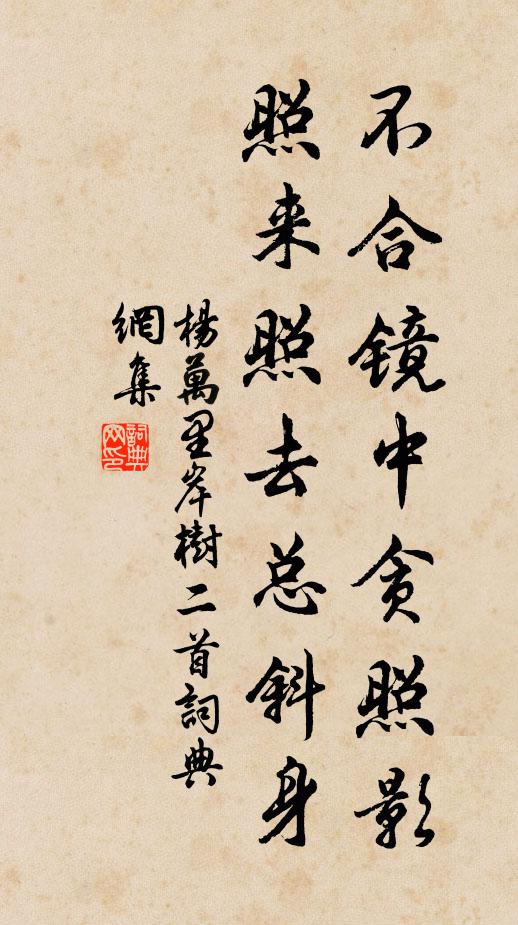 不合镜中贪照影
照来照去总斜身
楊萬里岸樹二首詞典
網集
詞典
网印